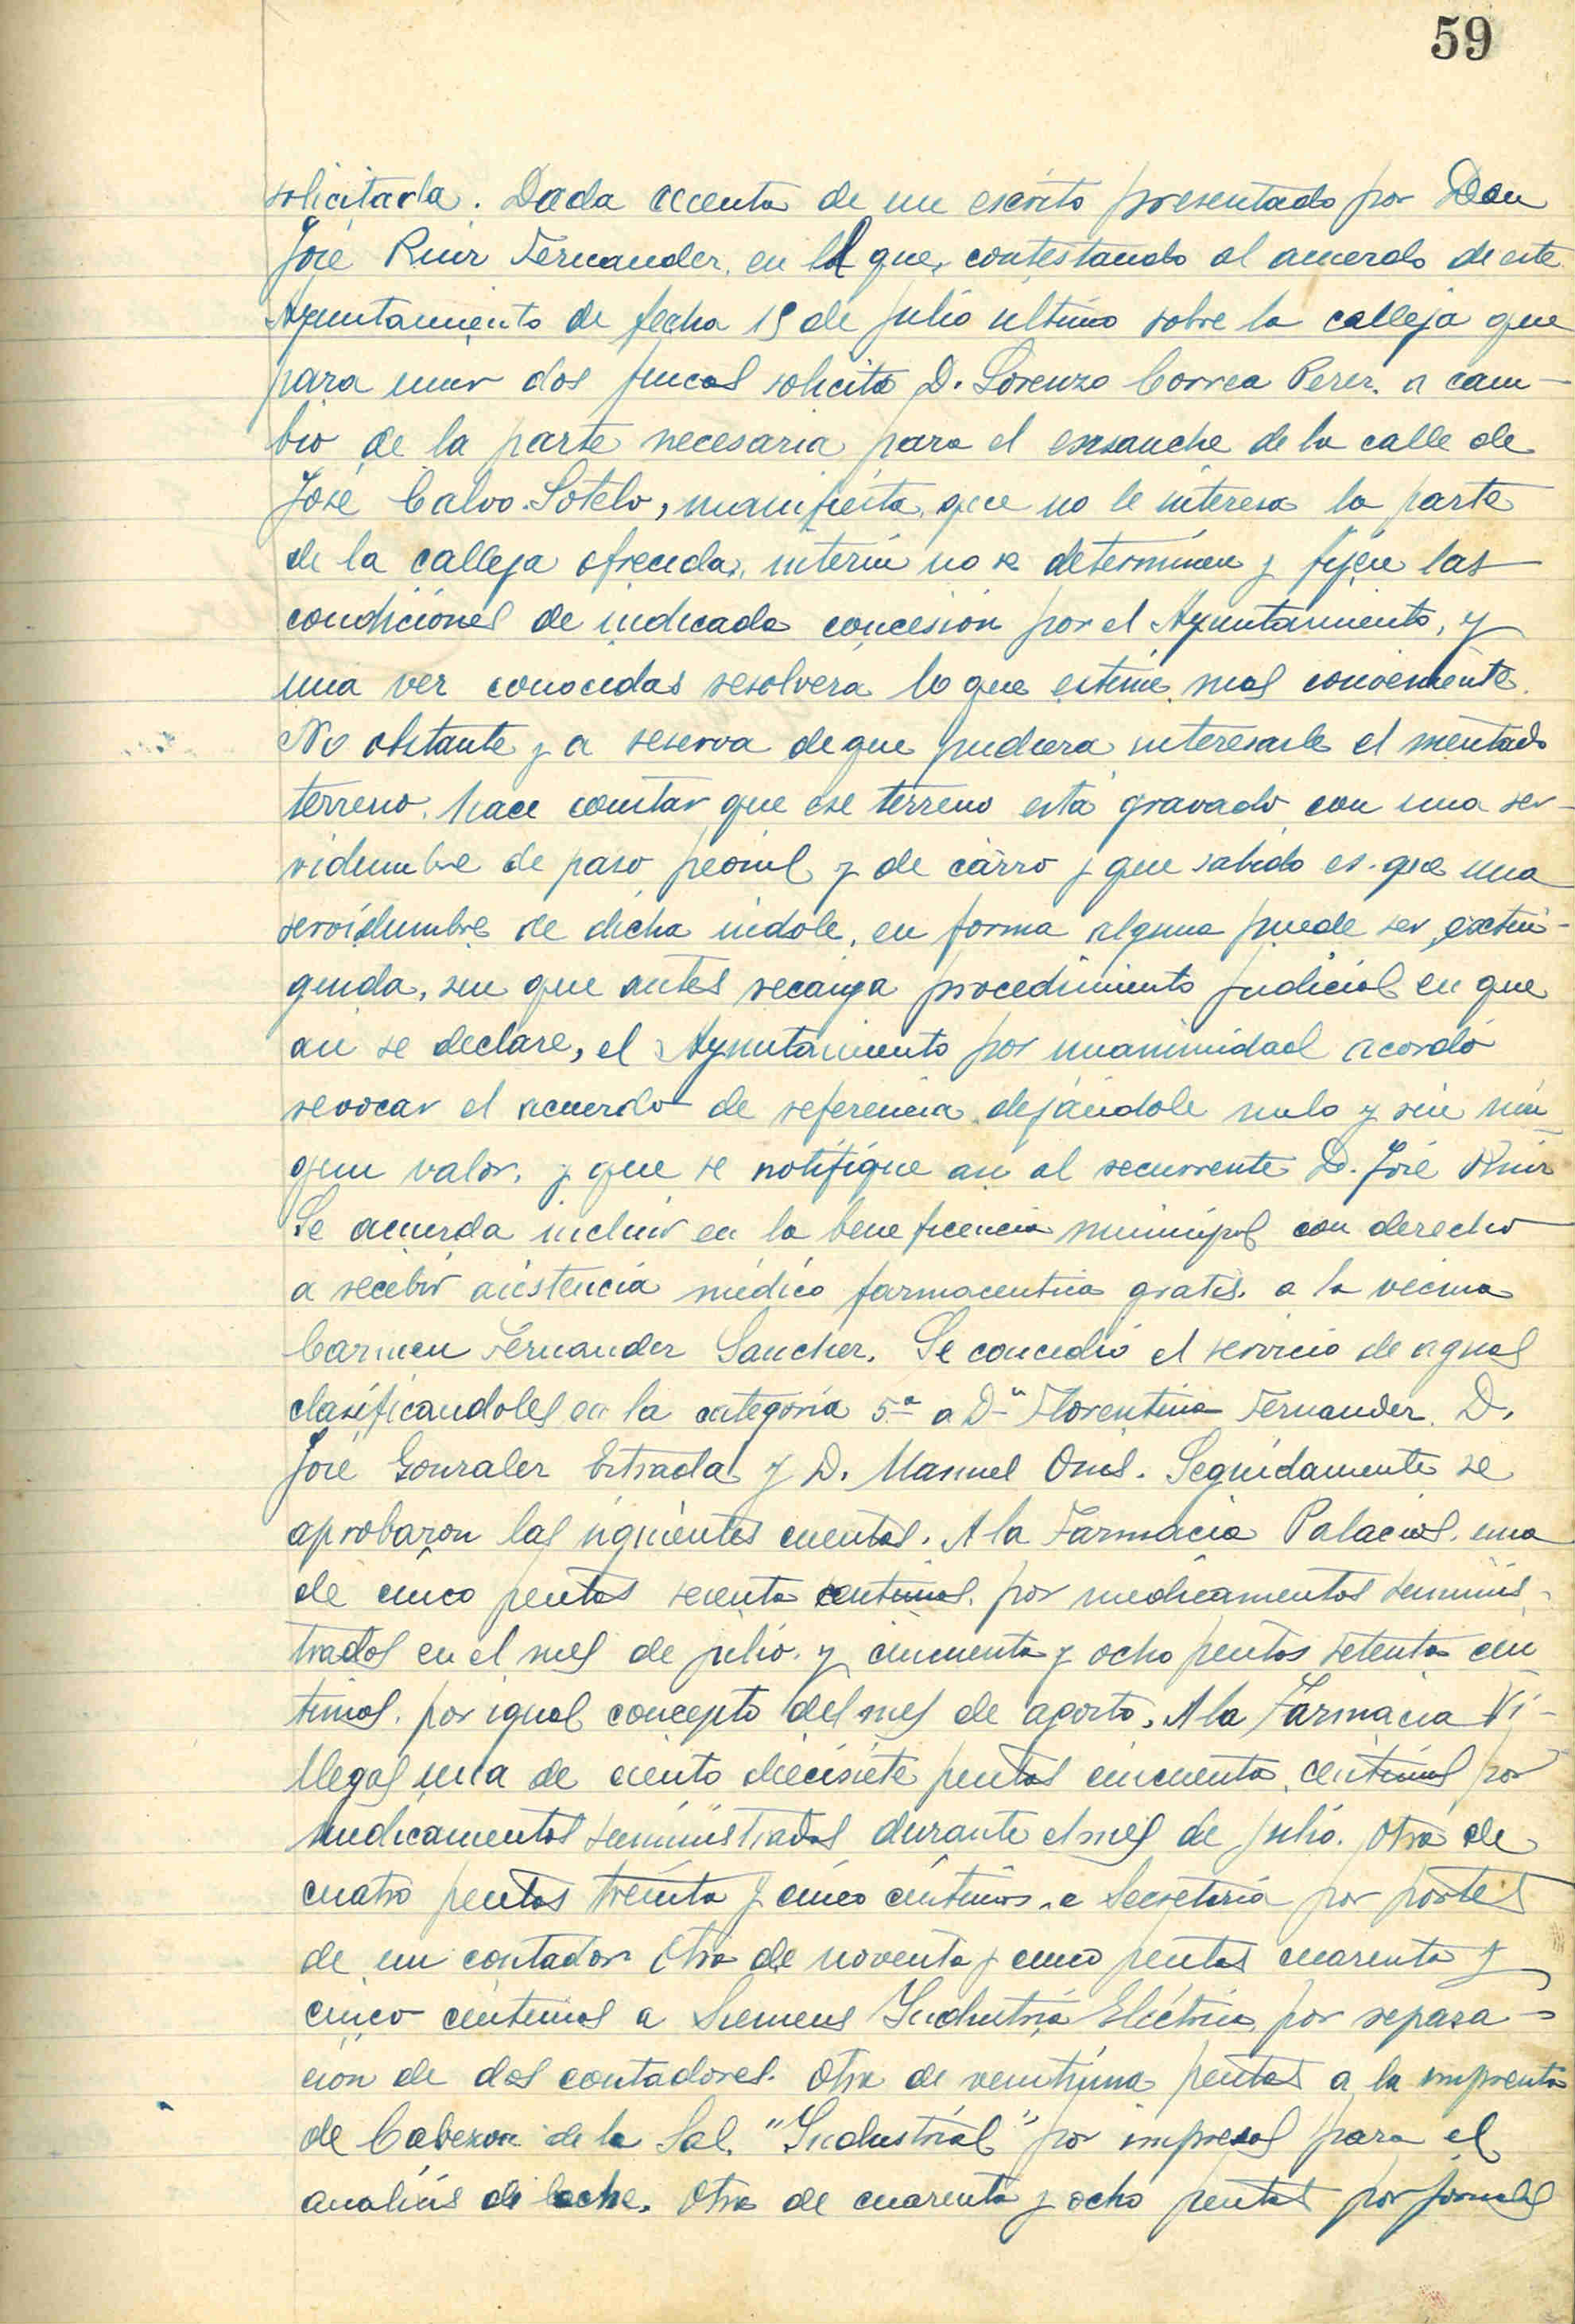 59
solicitarla. Dada cuenta de un escrito presentado por Don
José Ruiz Fernandez, en el que, contestando al acuerdo de este
Ayuntamiento de fecha 19 de julio ultimo sobre la calleja que
para unir dos fincas solicitó D. Lorenzo Correa Perez, a cam-
bio de la parte necesaria para el ensanche de la calle de
José Calvo Sotelo, manifiesta, que no le interesa la parte
de la calleja ofrecida, interin no se determinen y fijen las
condiciones de indicada concesión por el Ayuntamiento, y
una vez conocidas resolverá lo que estime mas conveniente.
No obstante y a reserva de que pudiera interesarle el mentado
terreno, hace constar que ese terreno está gravado con una ser-
vidumbre de paso peonil y de carro y que sabido es que una
servidumbre de dicha indole, en forma alguna puede ser extin-
guida, sin que antes recaiga procedimiento judicial en que
asi se declare, el Ayuntamiento por unanimidad acordó
revocar el acuerdo de referencia dejándole nulo y sin nin-
gun valor, y que se notifique asi al recurrente D. José Ruiz
Se acuerda incluir en la beneficencia municipal con derecho
a recibir asistencia médico farmaceutica gratis, a la vecina
Carmen Fernandez Sanchez. Se concedió el servicio de aguas
clasificandoles en la categoria 5ª a Dª Florentina Fernandez, D.
José Gonzalez Estrada y D. Manuel Onis. Seguidamente se
aprobaron las siguientes cuentas. A la Farmacia Palacios, una
de cinco pesetas sesenta centimos, por medicamentos suminis-
trados en el mes de julio, y cincuenta y ocho pesetas setenta cen
timos, por igual concepto del mes de agosto. A la Farmacia Vi-
llegas una de ciento diecisiete pesetas cincuenta centimos por
medicamentos suministrados durante el mes de julio. Otra de
cuatro pesetas treinta y cinco céntimos a Secretaria por portes
de un contador. Otra de noventa y cinco pesetas cuarenta y
cinco centimos a Siemens Industria Eléctrica, por repara-
cion de dos contadores. Otra de veintiuna pesetas a la imprenta
de Cabezon de la Sal, "Industrial" por impresos para el
analisis de leche. Otra de cuarenta y ocho pesetas por jornales